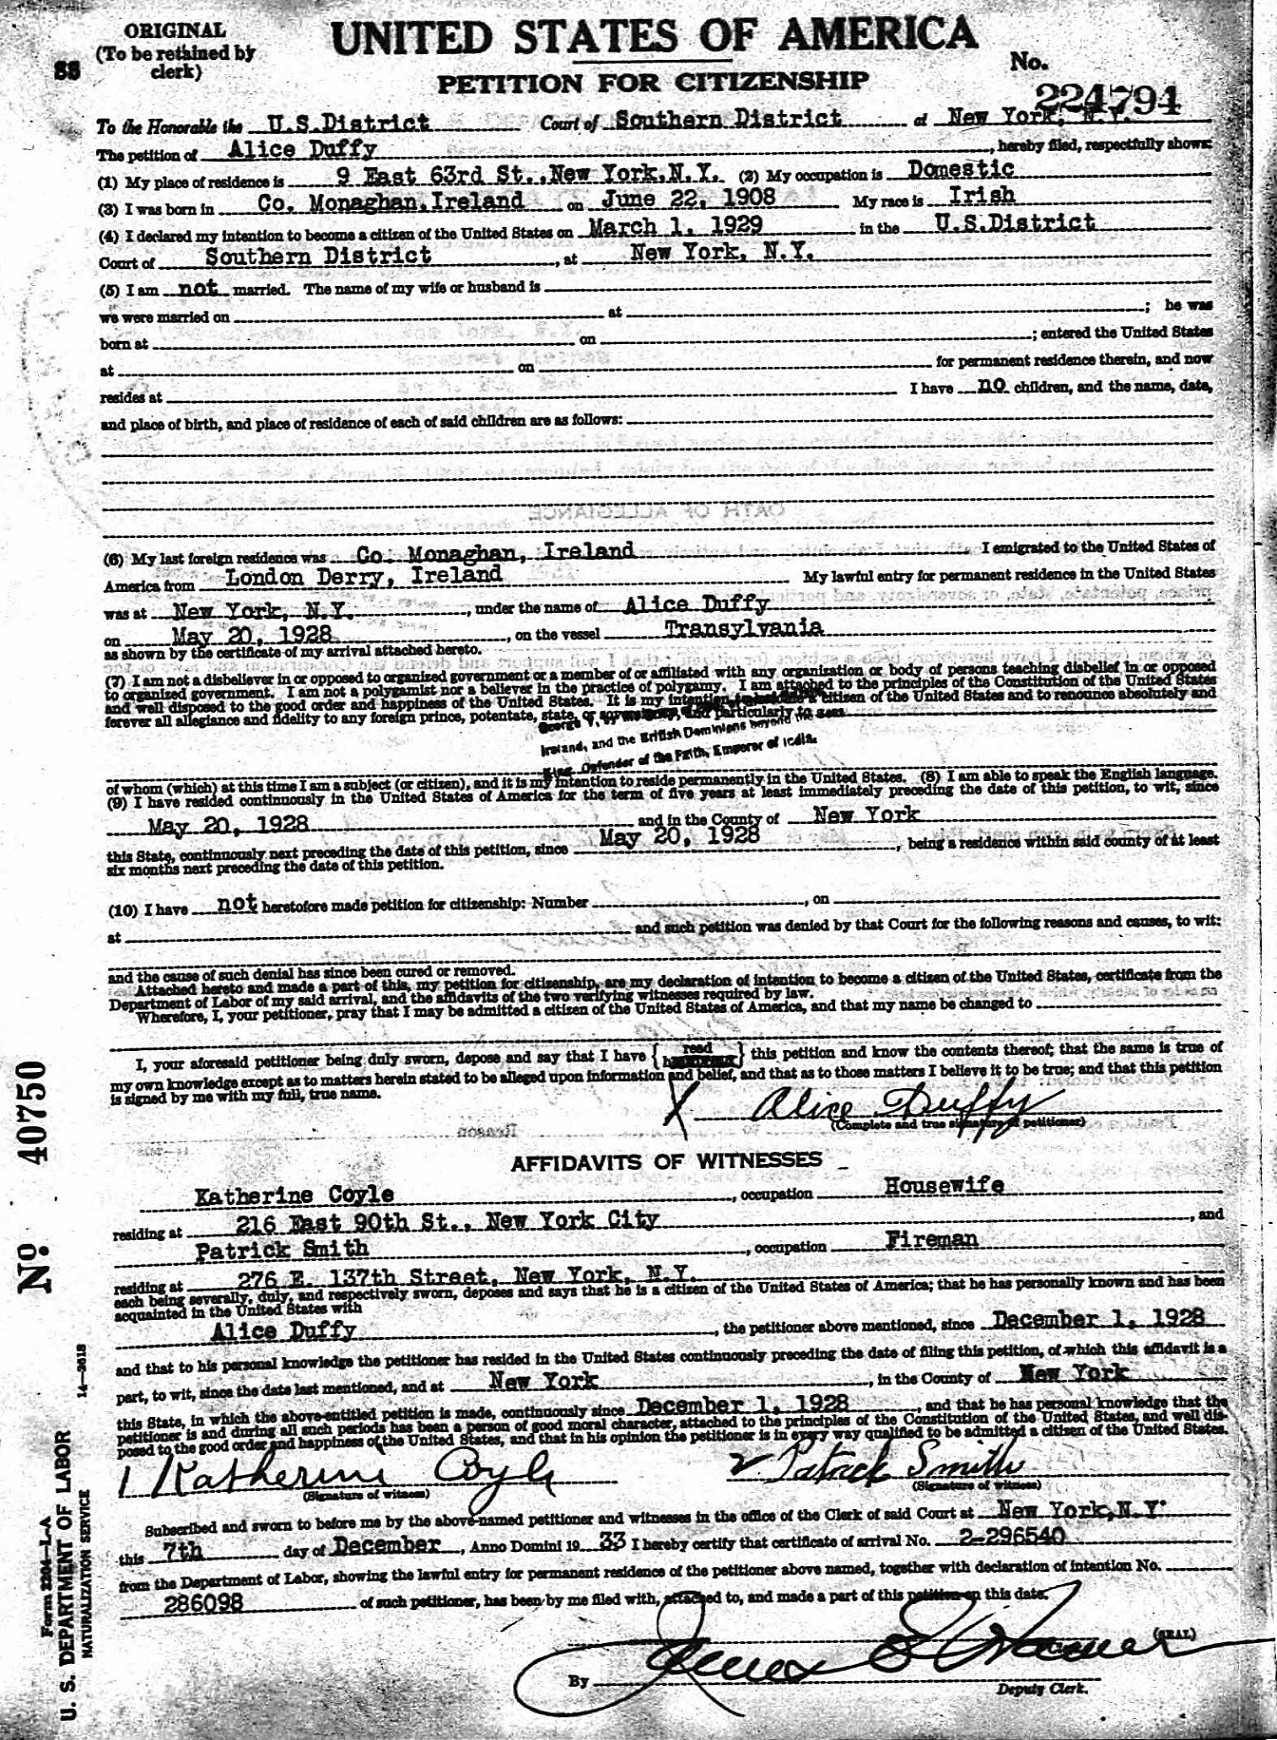 ORIGINAL
(To be retained by
clerk)
88
UNITED STATES OF AMERICA
PETITION FOR CITIZENSHIP
No.
224794
To the Honorable the U.S.District Court of Southern District at New York, N.Y.
The petition of Alice Duffy, hereby filed, respectfully shows:
(1) My place of residence is 9 East 63rd St.,New York,N.Y. (2) My occupation is Domestic
(3) I was born in Co. Monaghan,Ireland on June 22, 1908 My race is Irish
(4) I declared my intention to become a citizen of the United States on March 1, 1929 in the U.S.District
Court of Southern District, at New York, N.Y.
(5) I am not married. The name of my wife or husband is
we were married on at ; he was
born at on ; entered the United States
at on for permanent residence therein, and now
resides at I have no children, and the name, date,
and place of birth, and place of residence of each of said children are as follows:
(6) My last foreign residence was Co. Monaghan, Ireland I emigrated to the United States of
America from London Derry, Ireland My lawful entry for permanent residence in the United States
was at New York, N.Y., under the name of Alice Duffy
on May 20, 1928, on the vessel Transylvania
as shown by the certificate of my arrival attached hereto.
(7) I am not a disbeliever in or opposed to organized government or a member of or affiliated with any organization or body of persons teaching disbelief in or opposed
to organized government. I am not a polygamist nor a believer in the practice of polygamy. I am attached to the principles of the Constitution of the United States
and well disposed to the good order and happiness of the United States. It is my intention to become a citizen of the United States and to renounce absolutely and
forever all allegiance and fidelity to any foreign prince, potentate, state, or sovereignty, and particularly to
George V,
Ireland, and the British Dominions beyond the
King, Defender of the Faith, Emperor of India.
of whom (which) at this time I am a subject (or citizen), and it is my intention to reside permanently in the United States. (8) I am able to speak the English language.
(9) I have resided continuously in the United States of America for the term of five years at least immediately preceding the date of this petition, to wit, since
May 20, 1928 and in the County of New York
this State, continuously next preceding the date of this petition, since May 20, 1928, being a residence within said county of at least
six months next preceding the date of this petition.
(10) I have not heretofore made petition for citizenship: Number , on
at and such petition was denied by that Court for the following reasons and causes, to wit:
and the cause of such denial has since been cured or removed.
Attached hereto and made a part of this, my petition for citizenship, are my declaration of intention to become a citizen of the United States, certificate from the
Department of Labor of my said arrival, and the affidavits of the two verifying witnesses required by law.
Wherefore, I, your petitioner, pray that I may be admitted a citizen of the United States of America, and that my name be changed to
I, your aforesaid petitioner being duly sworn, depose and say that I have {read} this petition and know the contents thereof; that the same is true of
my own knowledge except as to matters herein stated to be alleged upon information and belief, and that as to those matters I believe it to be true; and that this petition
is signed by me with my full, true name.
X Alice Duffy
(Complete and true signature of petitioner)
AFFIDAVITS OF WITNESSES
Katherine Coyle, occupation Housewife
residing at 216 East 90th St., New York City, and
Patrick Smith, occupation Fireman
residing at 276 E. 137th Street, New York, N.Y.
each being severally, duly, and respectively sworn, deposes and says that he is a citizen of the United States of America; that he has personally known and has been
acquainted in the United States with
Alice Duffy, the petitioner above mentioned, since December 1, 1928
and that to his personal knowledge the petitioner has resided in the United States continuously preceding the date of filing this petition, of which this affidavit is a
part, to wit, since the date last mentioned, and at New York, in the County of New York
this State, in which the above-entitled petition is made, continuously since December 1, 1928, and that he has personal knowledge that the
petitioner is and during all such periods has been a person of good moral character, attached to the principles of the Constitution of the United States, and well dis-
posed to the good order and happiness of the United States, and that in his opinion the petitioner is in every way qualified to be admitted a citizen of the United States.
1 Katherine Coyle 2 Patrick Smith
(Signature of witness) (Signature of witness)
Subscribed and sworn to before me by the above-named petitioner and witnesses in the office of the Clerk of said Court at New York,N.Y.
this 7th day of December, Anno Domini 19 33 I hereby certify that certificate of arrival No. 2-296540
from the Department of Labor, showing the lawful entry for permanent residence of the petitioner above named, together with declaration of intention No.
286098 of such petitioner, has been by me filed with, attached to, and made a part of this petition on this date.
(SEAL)
By
Deputy Clerk.
No. 40750
Form 2204-L-A
U. S. DEPARTMENT OF LABOR
NATURALIZATION SERVICE
14-2618